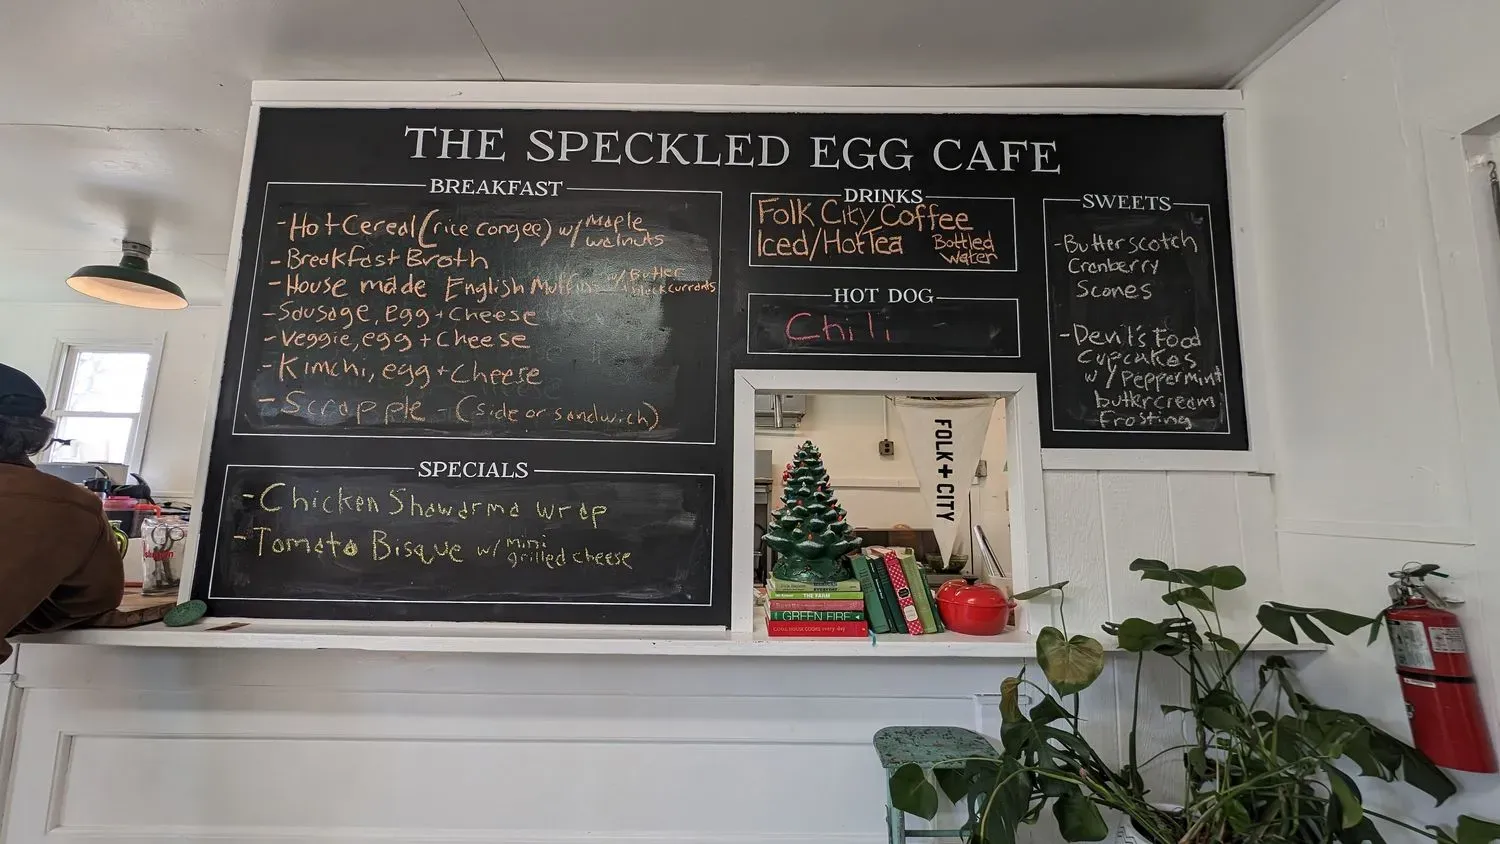 THE SPECKLED EGG CAFE
BREAKFAST
- Hot Cereal (rice congee) w/ Maple
walnuts
- Breakfast Broth
- House made English Muffins w/ Butter
+ black currants
- Sausage, egg + Cheese
- Veggie, egg + Cheese
- Kimchi, egg + Cheese
- Scrapple - (side or sandwich)
SPECIALS
- Chicken Shawarma wrap
- Tomato Bisque w/ mini
grilled cheese
DRINKS
Folk City Coffee
Iced/Hot Tea
Bottled
water
HOT DOG
Chili
SWEETS
- Butterscotch
Cranberry
Scones
- Devil's Food
Cupcakes
w/ Peppermint
buttercream
Frosting
FOLK + CITY
THE FARM
GREEN FIRE